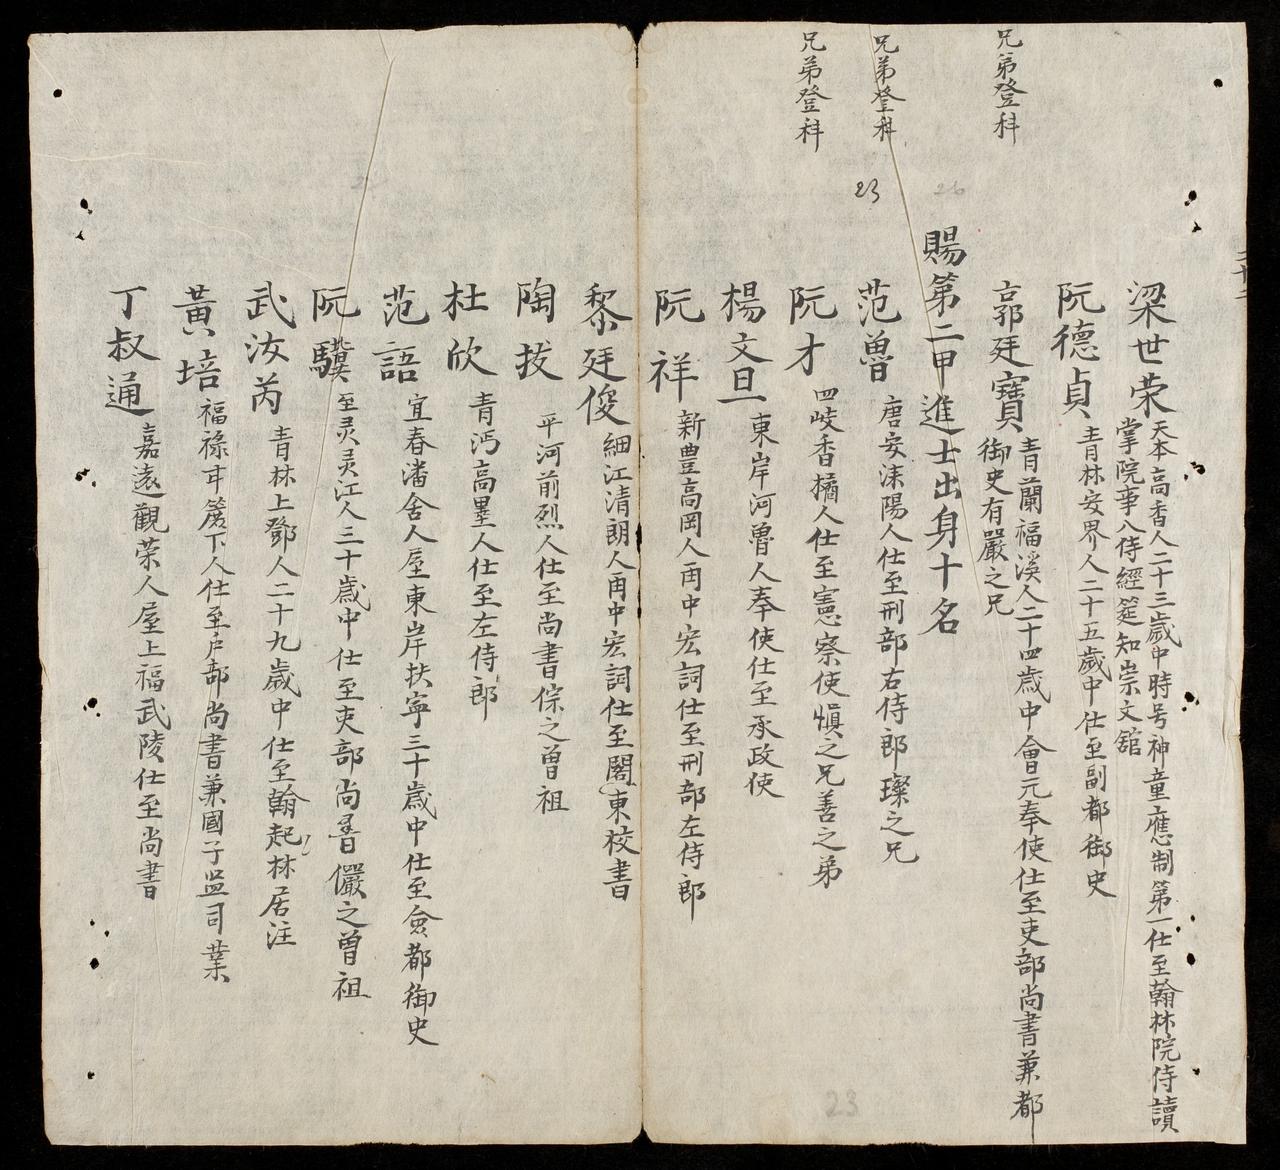 梁世荣
天本高香人二十三歲中時号神童應制第一仕至翰林院侍讀
掌院事入侍經筵知崇文舘
阮德貞
青林安界人二十五歲中仕至副都御史
兄弟登科
郭廷寶
青蘭福溪人二十四歲中會元奉使仕至吏部尚書兼都
御史有嚴之兄
賜第二甲進士出身十名
26
兄弟登科
23
范魯
唐安洡陽人仕至刑部右侍郎璨之兄
兄弟登科
阮才
四岐香橘人仕至憲察使慎之兄善之弟
楊文旦
東岸河魯人奉使仕至承政使
阮祥
新豊高岡人再中宏詞仕至刑部左侍郎
黎廷俊
細江清朗人再中宏詞仕至閣東校書
陶拔
平河前烈人仕至尚書倧之曽祖
杜欣
青沔高墨人仕至左侍郎
范語
宜春潘舍人屋東岸扶寧三十歲中仕至僉都御史
阮驥
至灵灵江人三十歲中仕至吏部尚書儼之曽祖
武汝芮
青林上鄧人二十九歲中仕至翰起林居注
黃培
福祿下人仕至户部尚書兼國子监司業
丁叔通
嘉遠觀荣人屋上福武陵仕至尚書
23